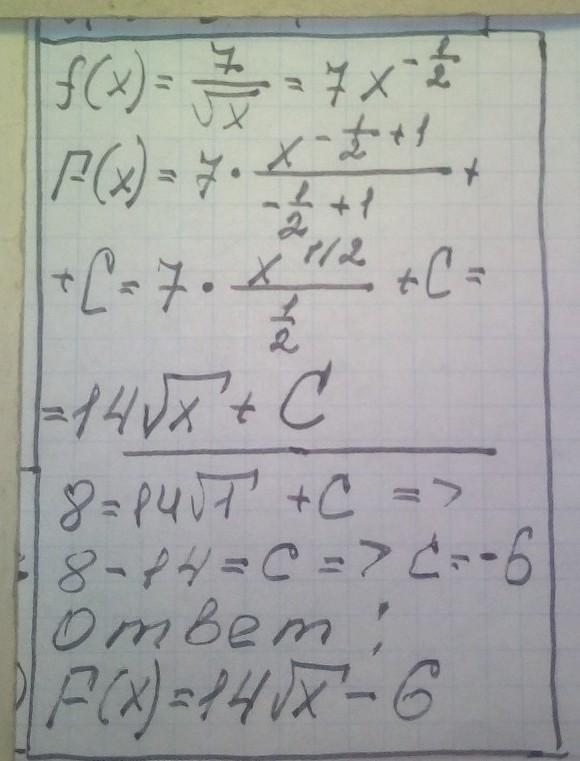 f(x) = 7/√x = 7x^(-1/2)
F(x) = 7 · x^(-1/2+1)/(-1/2+1) +
+C = 7 · x^(1/2)/(1/2) + C =
= 14√x + C
8 = 14√1 + C =>
8 - 14 = C => C = -6
Ответ:
F(x) = 14√x - 6